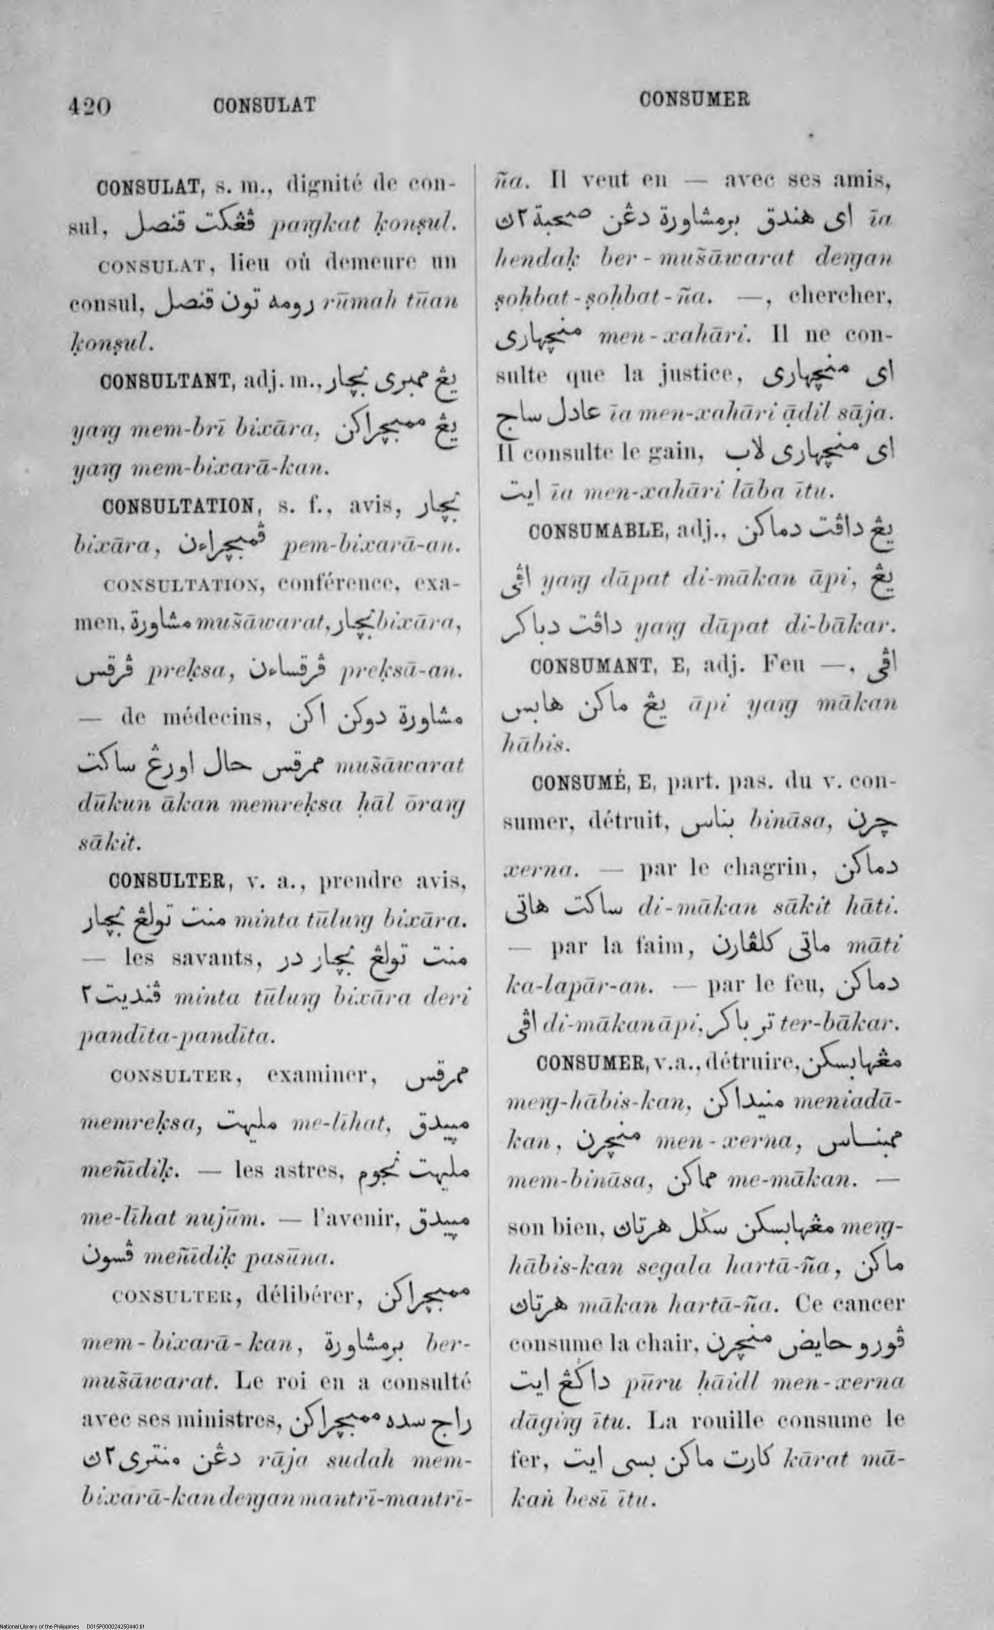 420 CONSULAT CONSUMER
CONSULAT, s. m., dignité de con-
sul, ڤڠكت قنصل pangkat ḳonṣul.
CONSULAT, lieu où demeure un
consul, رومه تون قنصل rūmah tūan
ḳonṣul.
CONSULTANT, adj. m., يڠ ممبرى بچار
yang mem-brī bixāra, يڠ ممبچراكن
yang mem-bixarā-kan.
CONSULTATION, s. f., avis, بچار
bixāra, ڤمبچراءن pem-bixarā-an.
CONSULTATION, conférence, exa-
men, مشاورة mušāwarat, بچار bixāra,
ڤرقس preḳsa, ڤرقساءن preḳsā-an.
— de médecins, مشاورة دوكن اكن
ممرقس حال اورڠ ساكت mušāwarat
dūkun ākan memreḳsa ḥāl ōrang
sākit.
CONSULTER, v. a., prendre avis,
منت تولڠ بچار minta tūlung bixāra.
— les savants, منت تولڠ بچار در
ڤنديت٢ minta tūlung bixāra deri
pandīta-pandīta.
CONSULTER, examiner, ممرقس
memreḳsa, مليهت me-līhat, مييدق
meñīdiḳ. — les astres, مليهت نجوم
me-līhat nujūm. — l'avenir, مييدق
ڤسون meñīdiḳ pasūna.
CONSULTER, délibérer, ممبچراكن
mem-bixarā-kan, برمشاورة ber-
mušāwarat. Le roi en a consulté
avec ses ministres, راج سده ممبچراكن
دڠن منترى٢ڽ rāja sudah mem-
bixarā-kan dengan mantrī-mantrī-
ña. Il veut en — avec ses amis,
اى هندق برمشاورة دڠن صحبة٢ڽ īa
hendaḳ ber-mušāwarat dengan
ṣoḥbat-ṣoḥbat-ña. —, chercher,
منچهارى men-xahāri. Il ne con-
sulte que la justice, اى منچهارى
عادل ساج īa men-xahāri ạ̄dil sāja.
Il consulte le gain, اى منچهارى لاب
ايت īa men-xahāri lāba ītu.
CONSUMABLE, adj., يڠ داڤت دماكن
اڤى yang dāpat di-mākan āpi, يڠ
داڤت دباكر yang dāpat di-bākar.
CONSUMANT, E, adj. Feu —, اڤى
يڠ ماكن هابس āpi yang mākan
hābis.
CONSUMÉ, E, part. pas. du v. con-
sumer, détruit, بناس bināsa, چرن
xerna. — par le chagrin, دماكن
ساكت هاتى di-mākan sākit hāti.
— par la faim, ماتى كلڤارن māti
ka-lapār-an. — par le feu, دماكن
اڤى di-mākan āpi, تر باكر ter-bākar.
CONSUMER, v. a., détruire, مڠهابسكن
meng-hābis-kan, منيداكن meniadā-
kan, منچرن men-xerna, ممبناس
mem-bināsa, مماكن me-mākan. —
son bien, مڠهابسكن سڬل هرتاڽ meng-
hābis-kan segala hartā-ña, ماكن
هرتاڽ mākan hartā-ña. Ce cancer
consume la chair, ڤورو حايض منچرن
داڬڠ ايت pūru ḥāidl men-xerna
dāging ītu. La rouille consume le
fer, كارت ماكن بسى ايت kārat mā-
kaṅ besī ītu.
National Library of the Philippines D01SP000024250440.tif